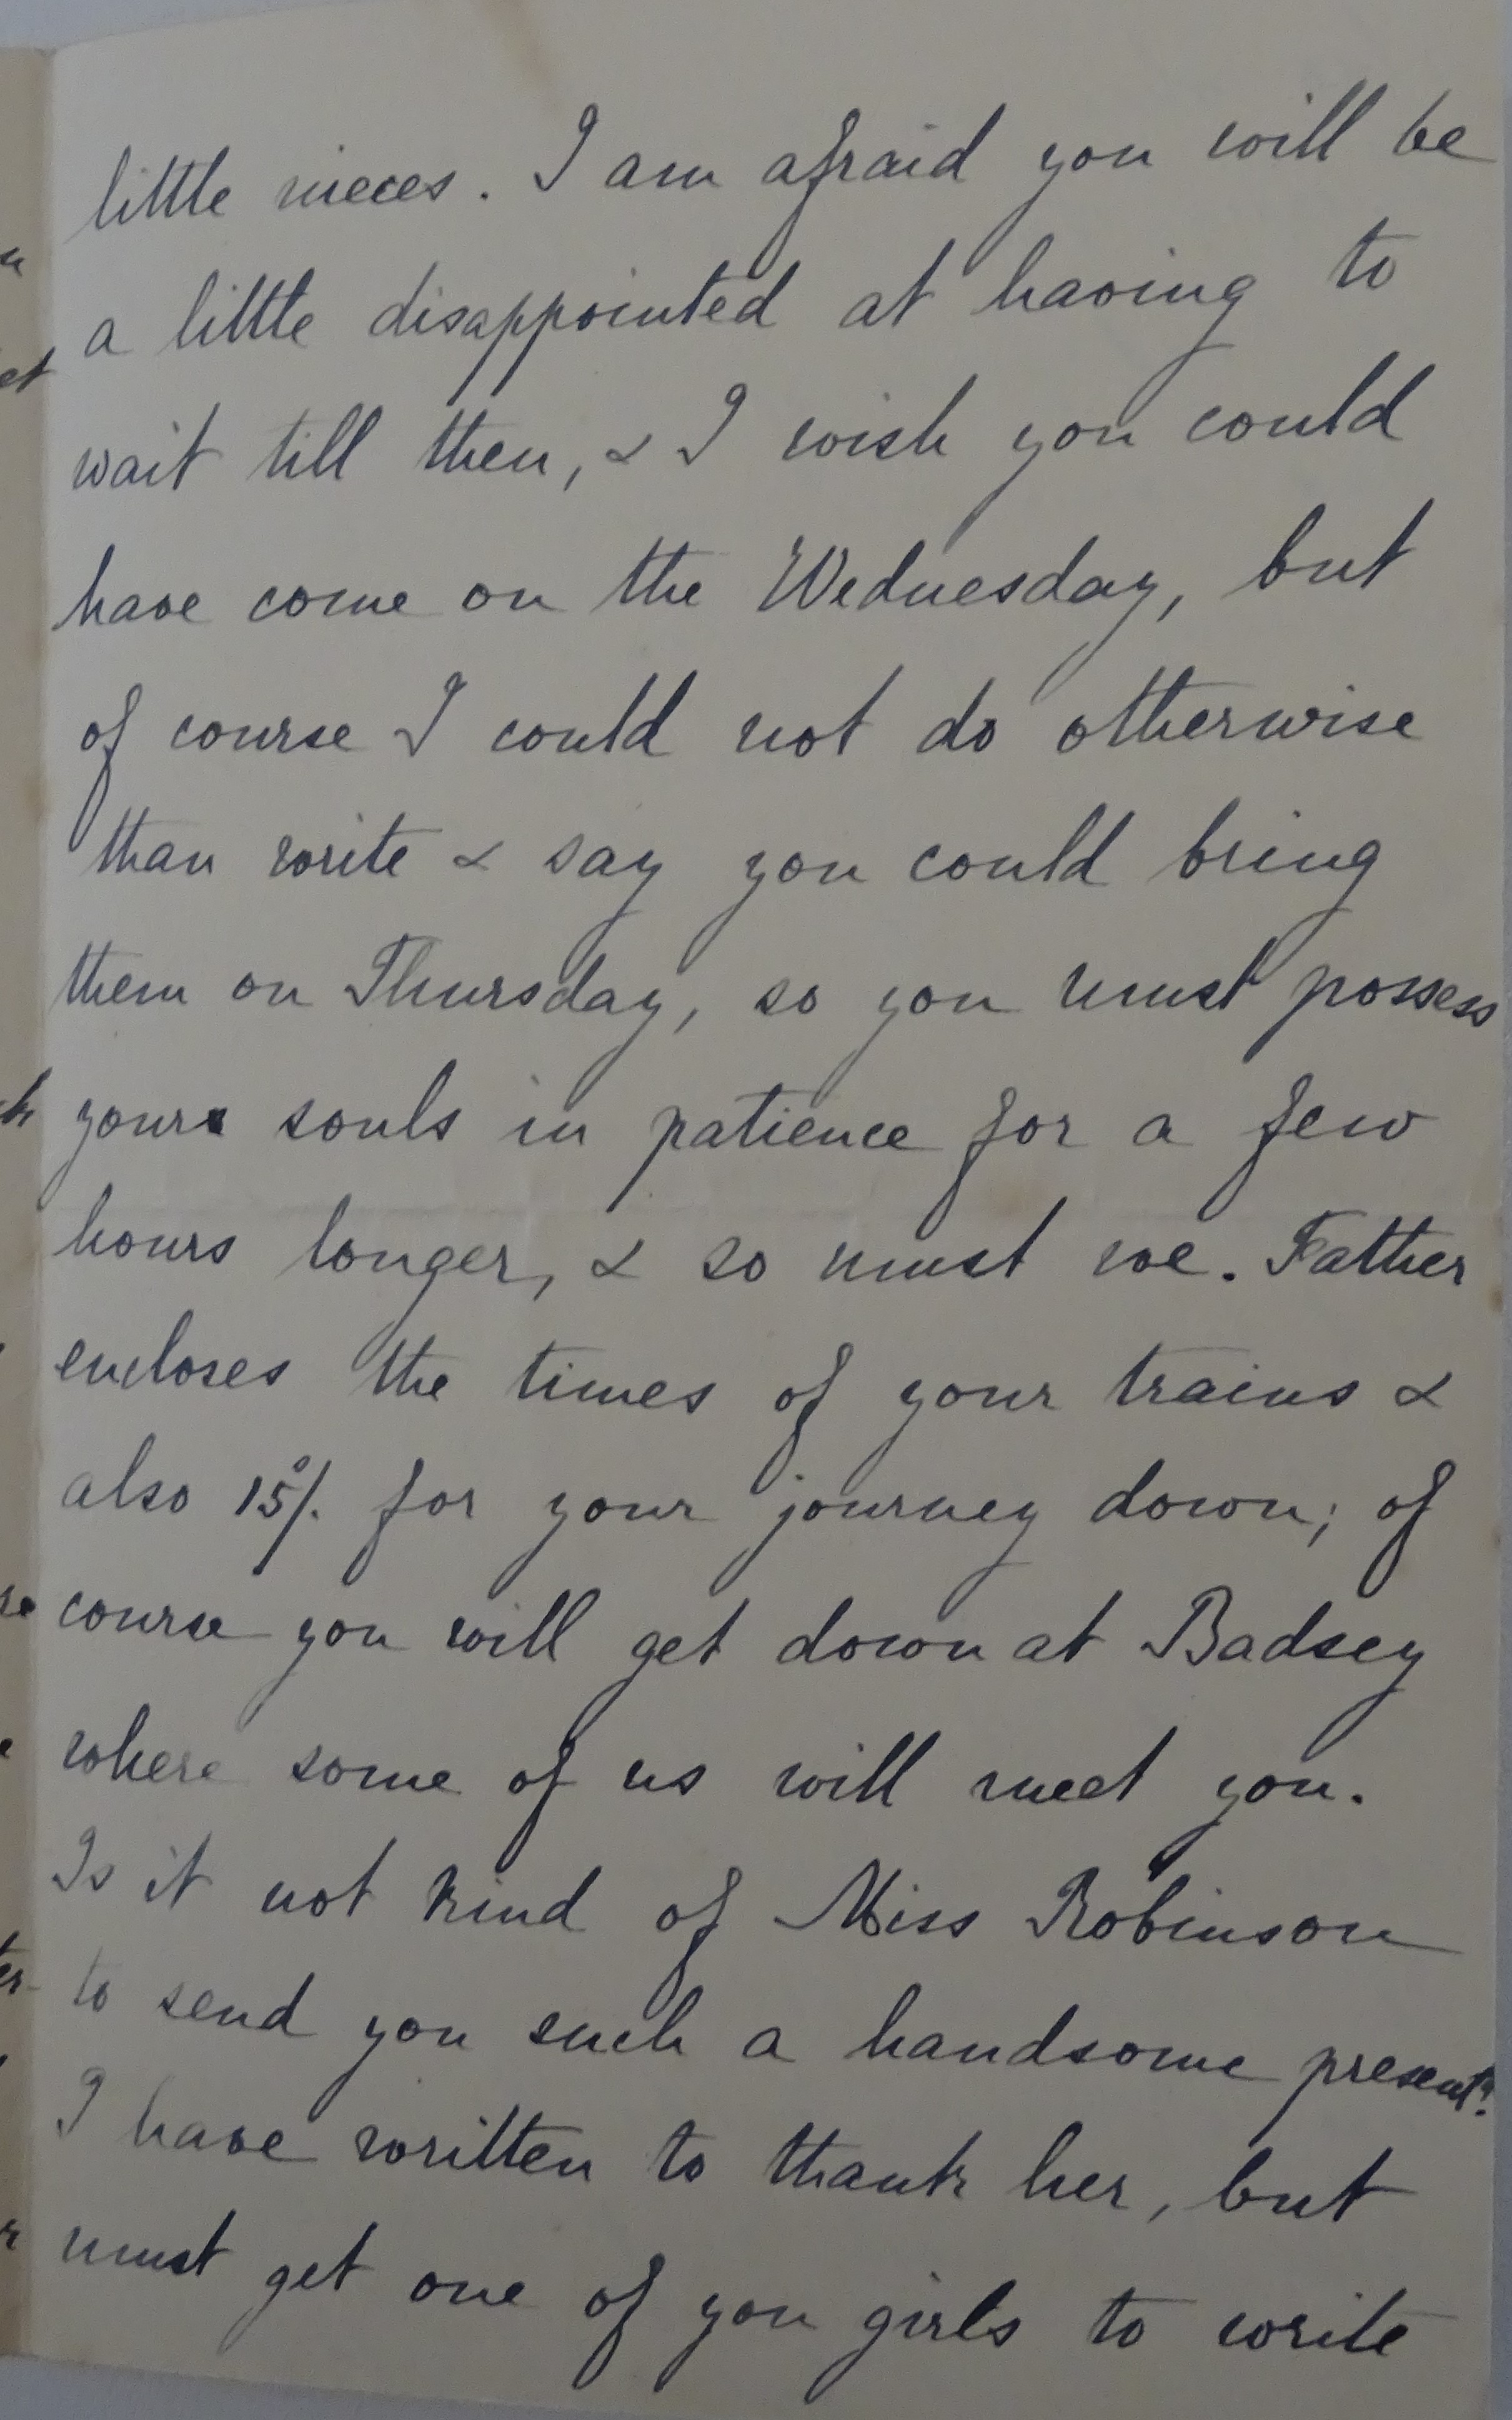 little nieces. I am afraid you will be
a little disappointed at having to
wait till then, & I wish you could
have come on the Wednesday, but
of course I could not do otherwise
than write & say you could bring
them on Thursday, so you must possess
your souls in patience for a few
hours longer, & so must we. Father
encloses the times of your trains &
also 15/. for your journey down; of
course you will get down at Badsey
where some of us will meet you.
Is it not kind of Miss Robinson
to send you such a handsome present?
I have written to thank her, but
must get one of you girls to write